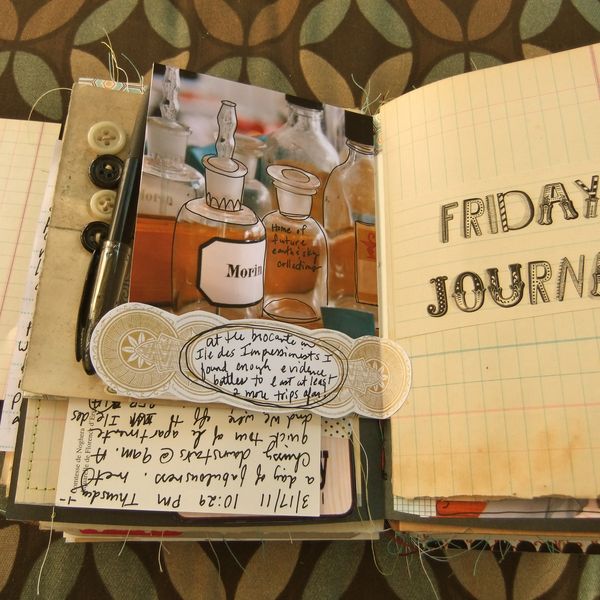 Home of
future
earth & sky
collection
Morin
at the brocante in
Ile des Impressionists I
found enough evidence
bottles to last at least
2 more trips afar!
FRIDAY
JOURNA
3/17/11 10:29 PM Thursday
a day of fabulousness. met
Chrissy downstairs @ 9am. A
quick tour of le apartmente
and we were off to Ile des